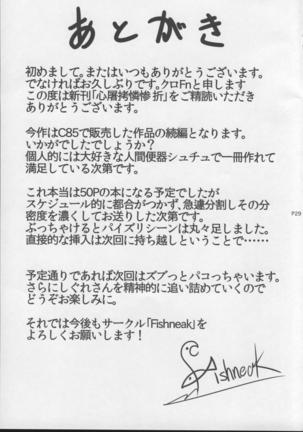 あとがき
初めまして。またはいつもありがとうございます。
でなければお久しぶりです。クロFnと申します
この度は新刊「心屠拷憐惨 折」をご精読いただき
ありがとうございます。
今作はC85で販売した作品の続編となります。
いかがでしたでしょうか?
個人的には大好きな人間便器シュチュで一冊作れて
満足している次第です。
これ本当は50Pの本になる予定でしたが
スケジュール的に都合がつかず、急遽分割しその分
密度を濃くしてお送りした次第です。
ぶっちゃけるとパイズリシーンは丸々足しました。
直接的な挿入は次回に持ち越しということで……
P29
予定通りであれば次回はズブっとパコっちゃいます。
さらにしぐれさんを精神的に追い詰めていくので
どうぞお楽しみに。
それでは今後もサークル「Fishneak」を
よろしくお願いします!
Fishneak